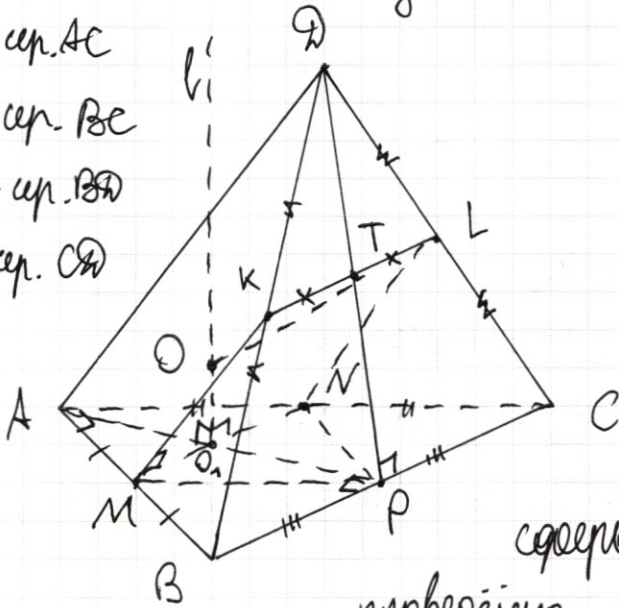 сер. AC
сер. BC
сер. BD
сер. CD
D
l
T
L
K
O
N
A
C
O₁
M
P
B